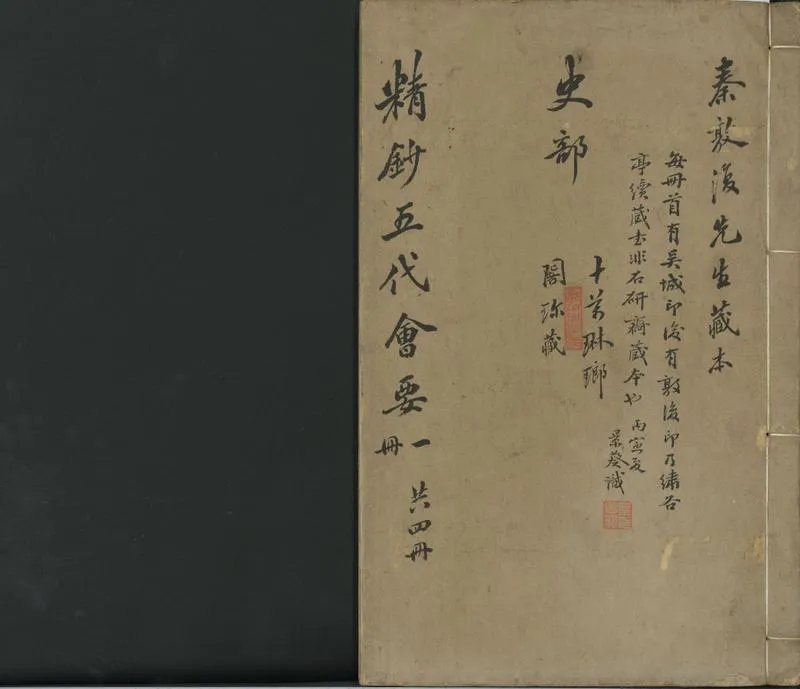 秦敦復先生藏本
每冊首有吳城印後有敦復印乃繡谷
亭續藏去非石研齋藏本也 丙寅夏
景葵識
史部
十萬琳瑯
閣珍藏
精鈔五代會要 一冊 共四冊